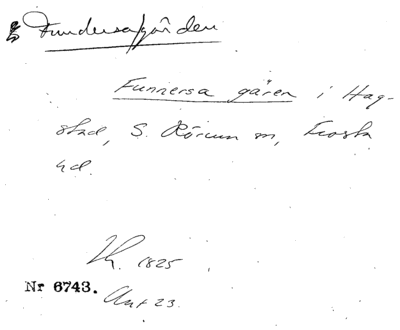 Fundersagården
Funnersa gåren i Hag-
stad, S. Rörum sn, Frosta
hd.
1825
Nr 6743.
23.